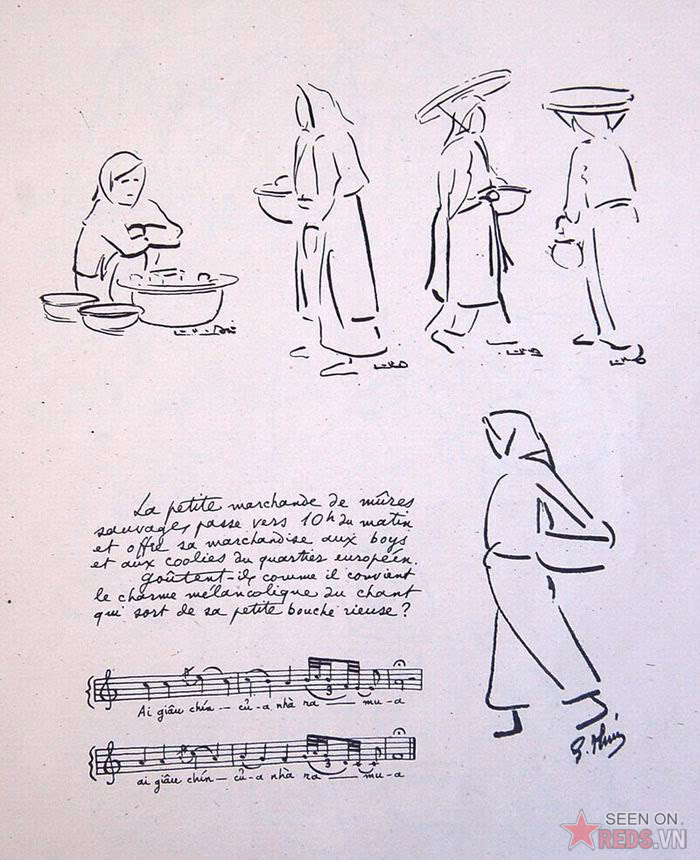 La petite marchande de mûres
sauvages passe vers 10h du matin
et offre sa marchandise aux boys
et aux coolies du quartier européen.
Goûtent-ils comme il convient
le charme mélancolique du chant
qui sort de sa petite bouche rieuse ?
Ai giâu chín — củ-a nhà ra — mu-a
3
ai giâu chín — củ-a nhà ra — mu-a
3
SEEN ON
REDS.VN